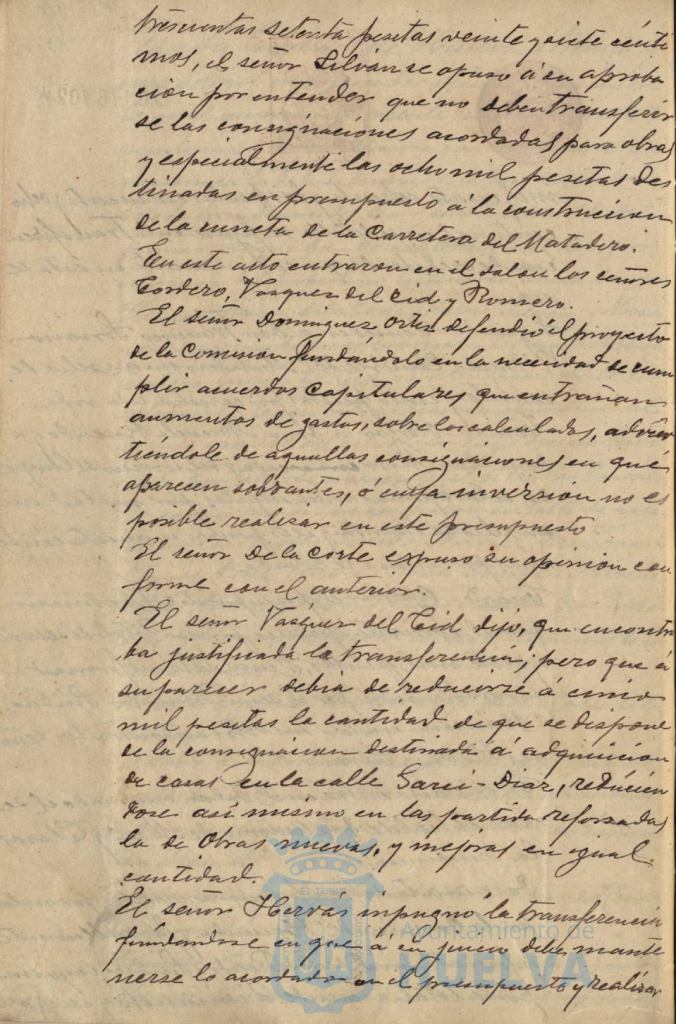 trescientas setenta pesetas veinte y siete cénti
mos, el señor Silván se opuso á su aproba
cion por entender que no deben transferir
se las consignaciones acordadas para obras
y especialmente las ocho mil pesetas des
tinadas en presupuesto á la construccion
de la cuneta de la Carretera del Matadero.
En este acto entraron en el salon los señores
Cordero, Vasquez del Cid y Romero.
El señor Dominguez Ortiz defendió el proyecto
de la Comision fundándolo en la necesidad de cum
plir acuerdos capitulares que entrañan
aumentos de gastos, sobre los calculados,
tiéndole de aquellas consignaciones en que
aparecen sobrantes, ó cuya inversion no es
posible realizar en este presupuesto
El señor de la Corte expuso su opinion con
forme con el anterior.
El señor Vasquez del Cid dijo, que encontra
ba justificada la transferencia; pero que á
su parecer debia de reducirse á cinco
mil pesetas la cantidad de que se dispone
de la consignacion destinada á adquisicion
de casas en la calle Garci-Diaz, reducien
dose asi mismo en las partida reforzadas
la de Obras nuevas, y mejoras en igual
cantidad.
El señor Hervás impugnó la transferencia
fundandose en que á su juicio debe mante
nerse lo acordado en el presupuesto y realizar
Ayuntamiento de
HUELVA